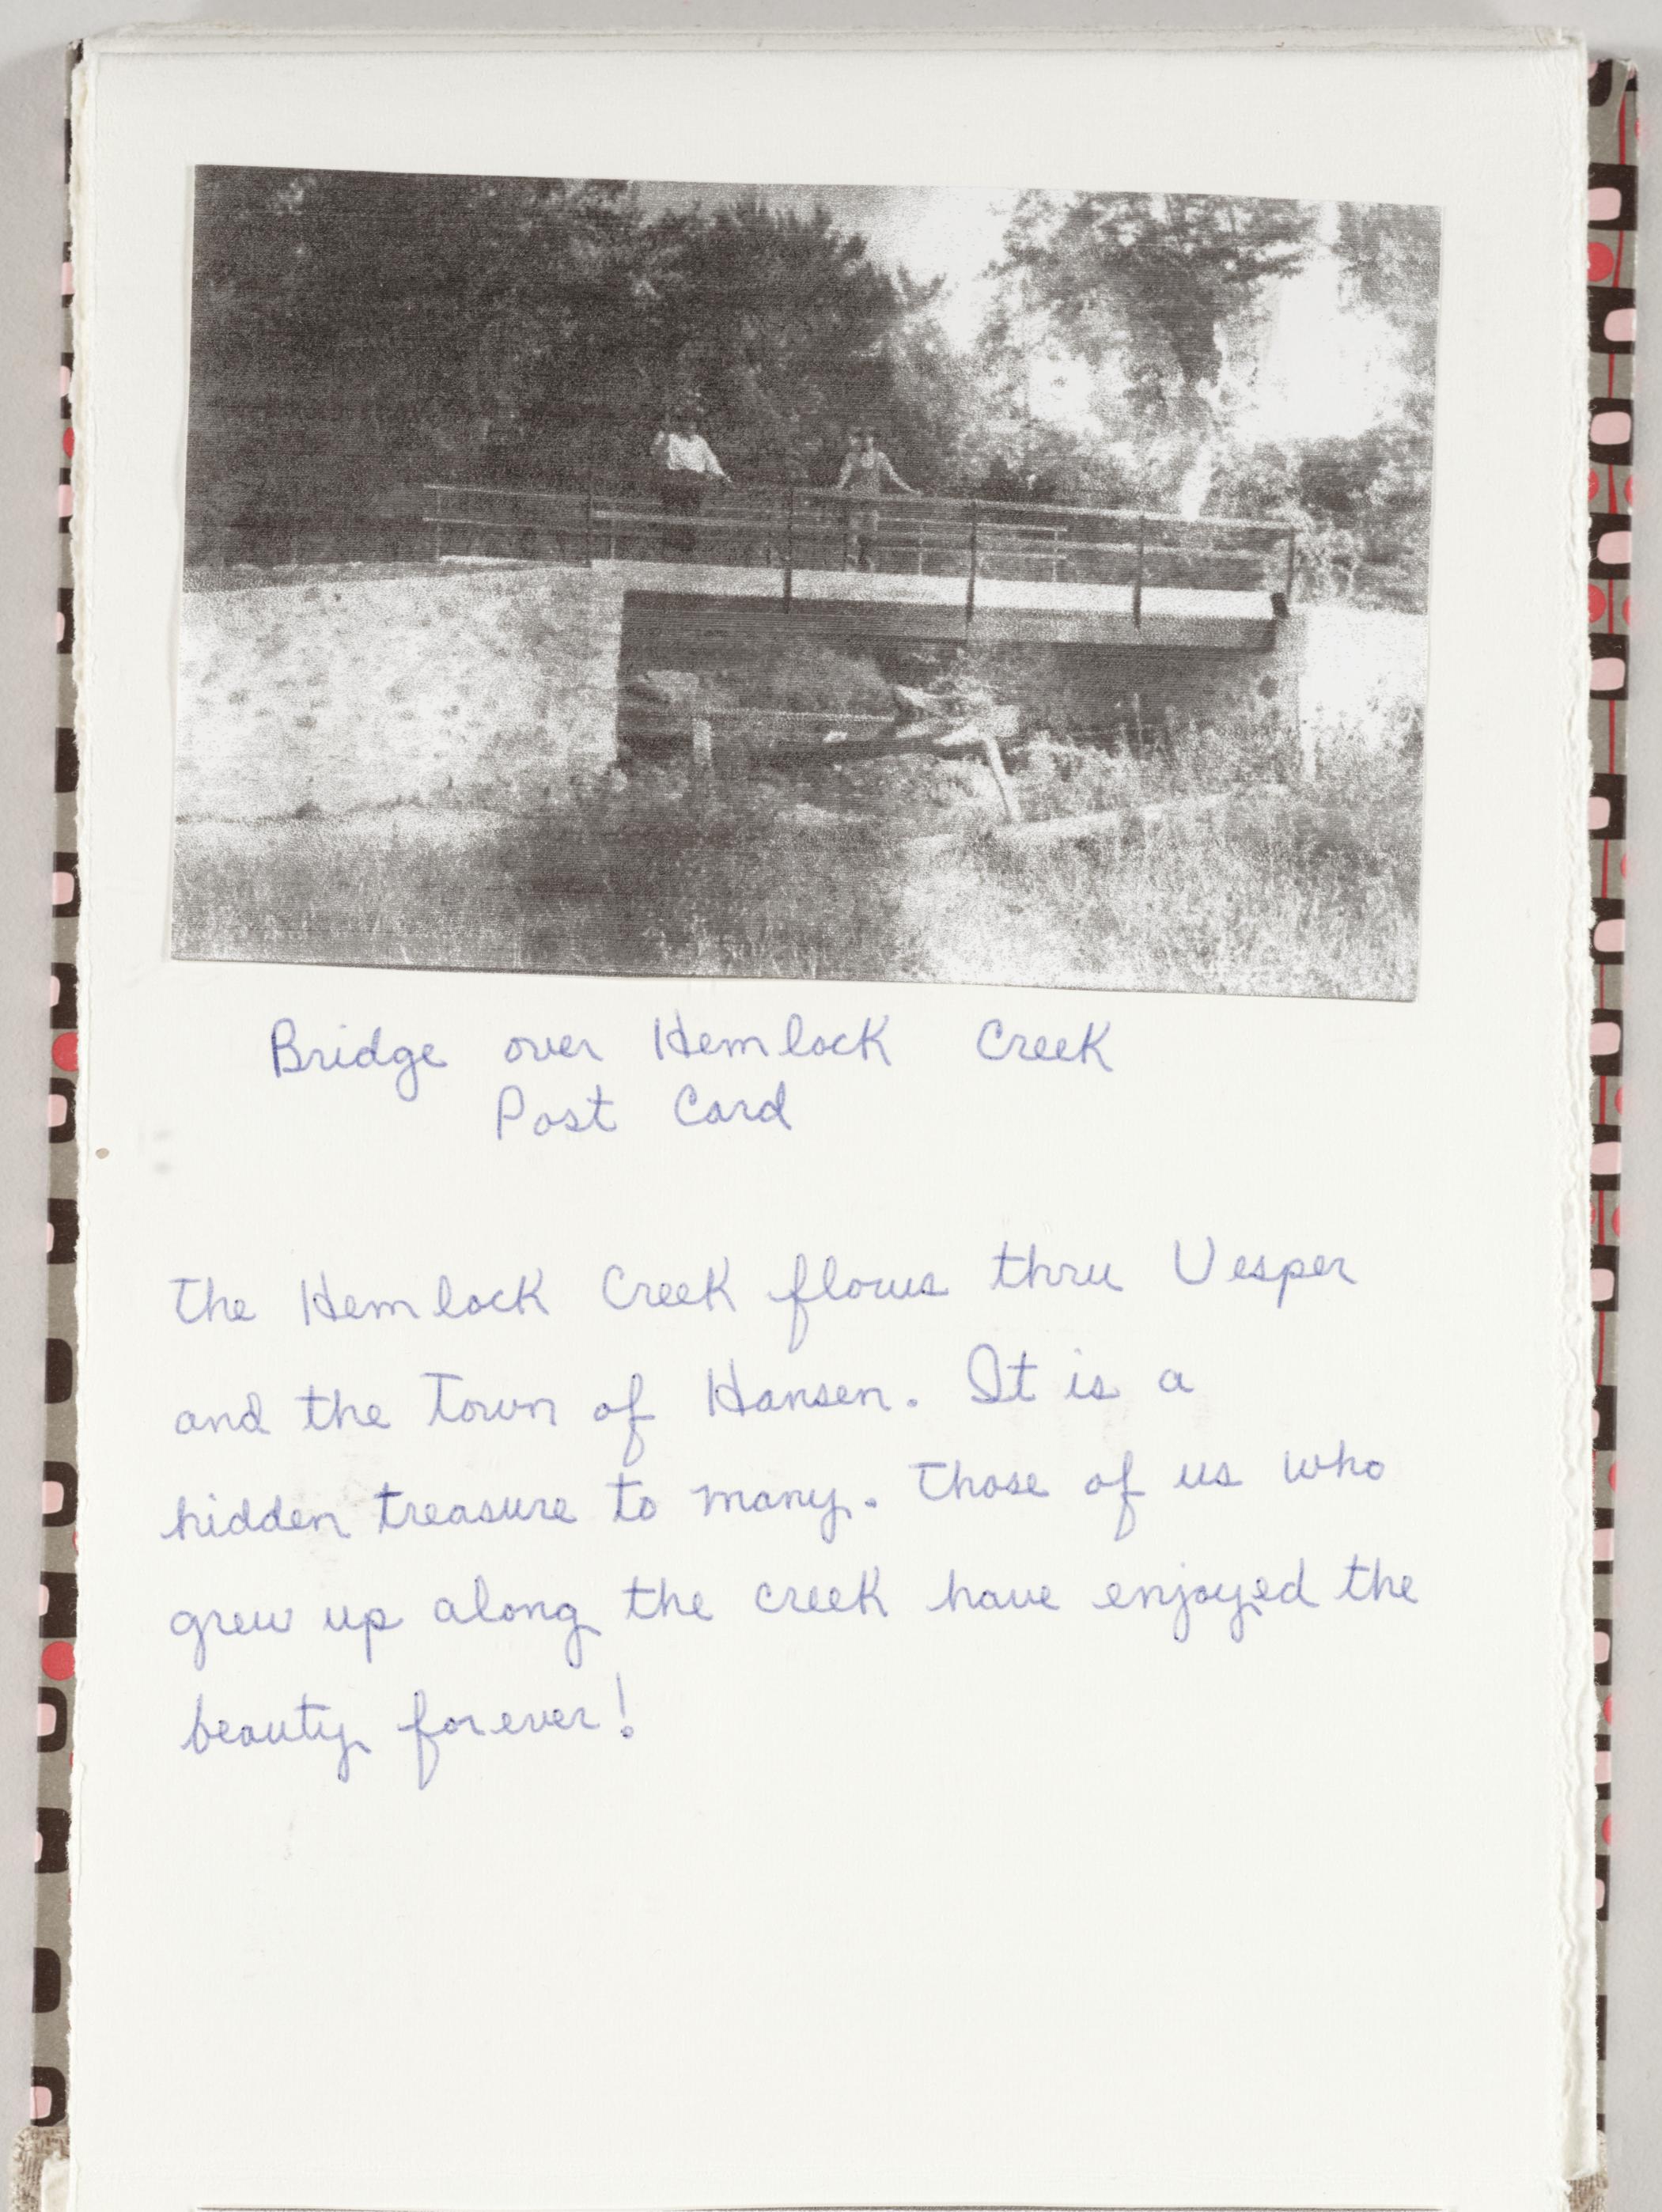 Bridge over Hemlock Creek
Post Card
The Hemlock Creek flows thru Vesper
and the Town of Hansen. It is a
hidden treasure to many. Those of us who
grew up along the creek have enjoyed the
beauty forever!